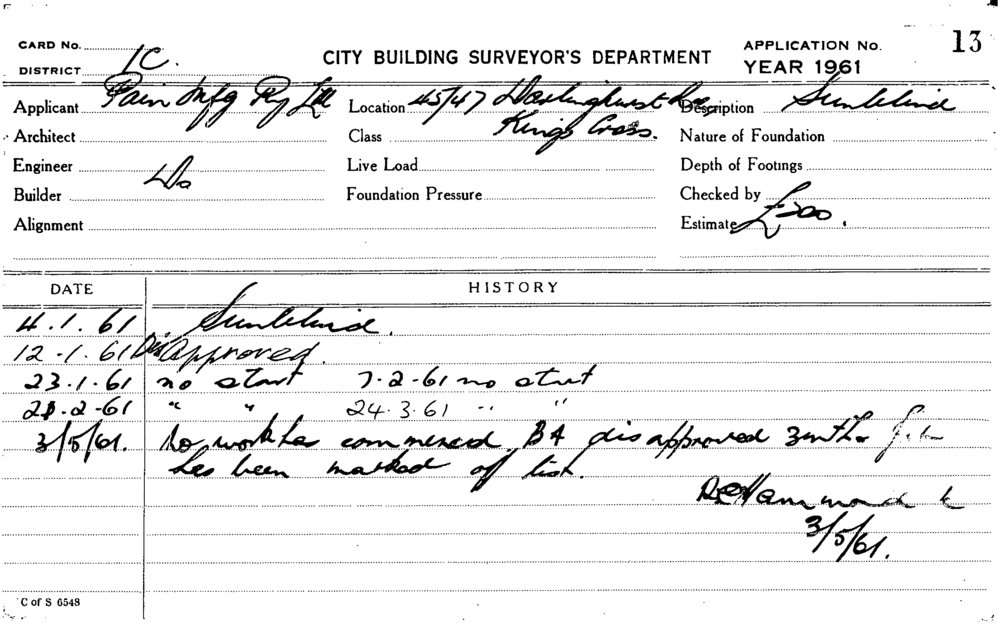 CARD No.
DISTRICT 1C.
CITY BUILDING SURVEYOR'S DEPARTMENT
APPLICATION No. 13
YEAR 1961
Applicant Pain Mfg Pty Ltd Location 45/47 Darlinghurst Rd, Description Sunblind
Architect Class Kings Cross. Nature of Foundation
Engineer Live Load Depth of Footings
Builder Do Foundation Pressure Checked by
Alignment Estimate £200.
DATE HISTORY
4.1.61 Sunblind.
12.1.61 DisApproved.
23.1.61 no start 7-2-61 no start
21.2-61 " " 24.3.61 " "
3/5/61. No work has commenced. BA disapproved 3mths
has been marked of list.
Hammond
3/5/61.
C of S 6548